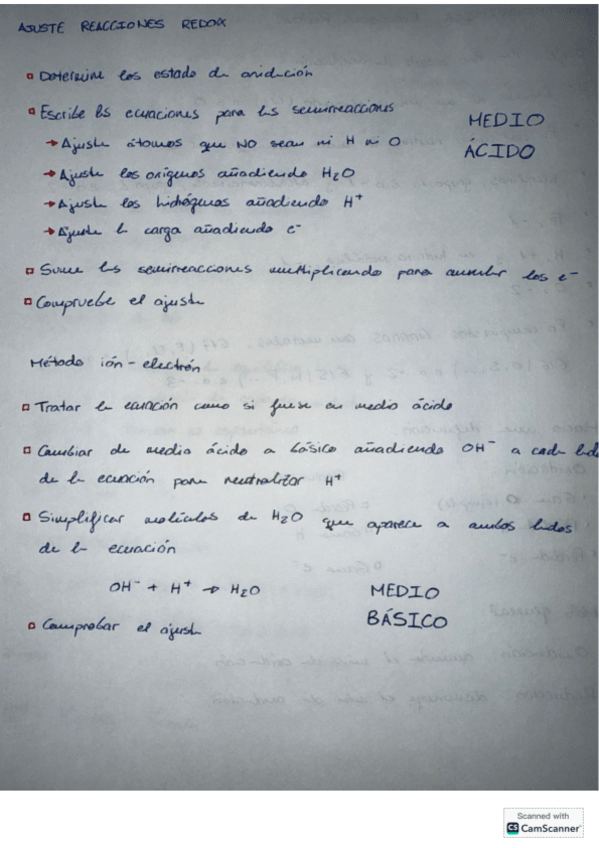 AJUSTE REACCIONES REDOX
Determine los estado de oxidación
Escribe ls ecuaciones para ls semirreacciones
MEDIO
ÁCIDO
→ Ajuste átomos que NO sean ni H ni O
→ Ajuste los oxígenos añadiendo H2O
→ Ajuste los hidrógenos añadiendo H+
→ Ajuste l carga añadiendo e-
Sume ls semirreacciones multiplicando para anular los e-
Compruebe el ajuste
Método ión-electrón
Tratar l ecuación como si fuese en medio ácido
Cambiar de medio ácido a básico añadiendo OH- a cada lado
de l ecuación para neutralizar H+
Simplificar moléculas de H2O que aparece a ambos lados
de l ecuación
OH- + H+ → H2O
MEDIO
BÁSICO
Comprobar el ajuste
Scanned with
CS CamScanner